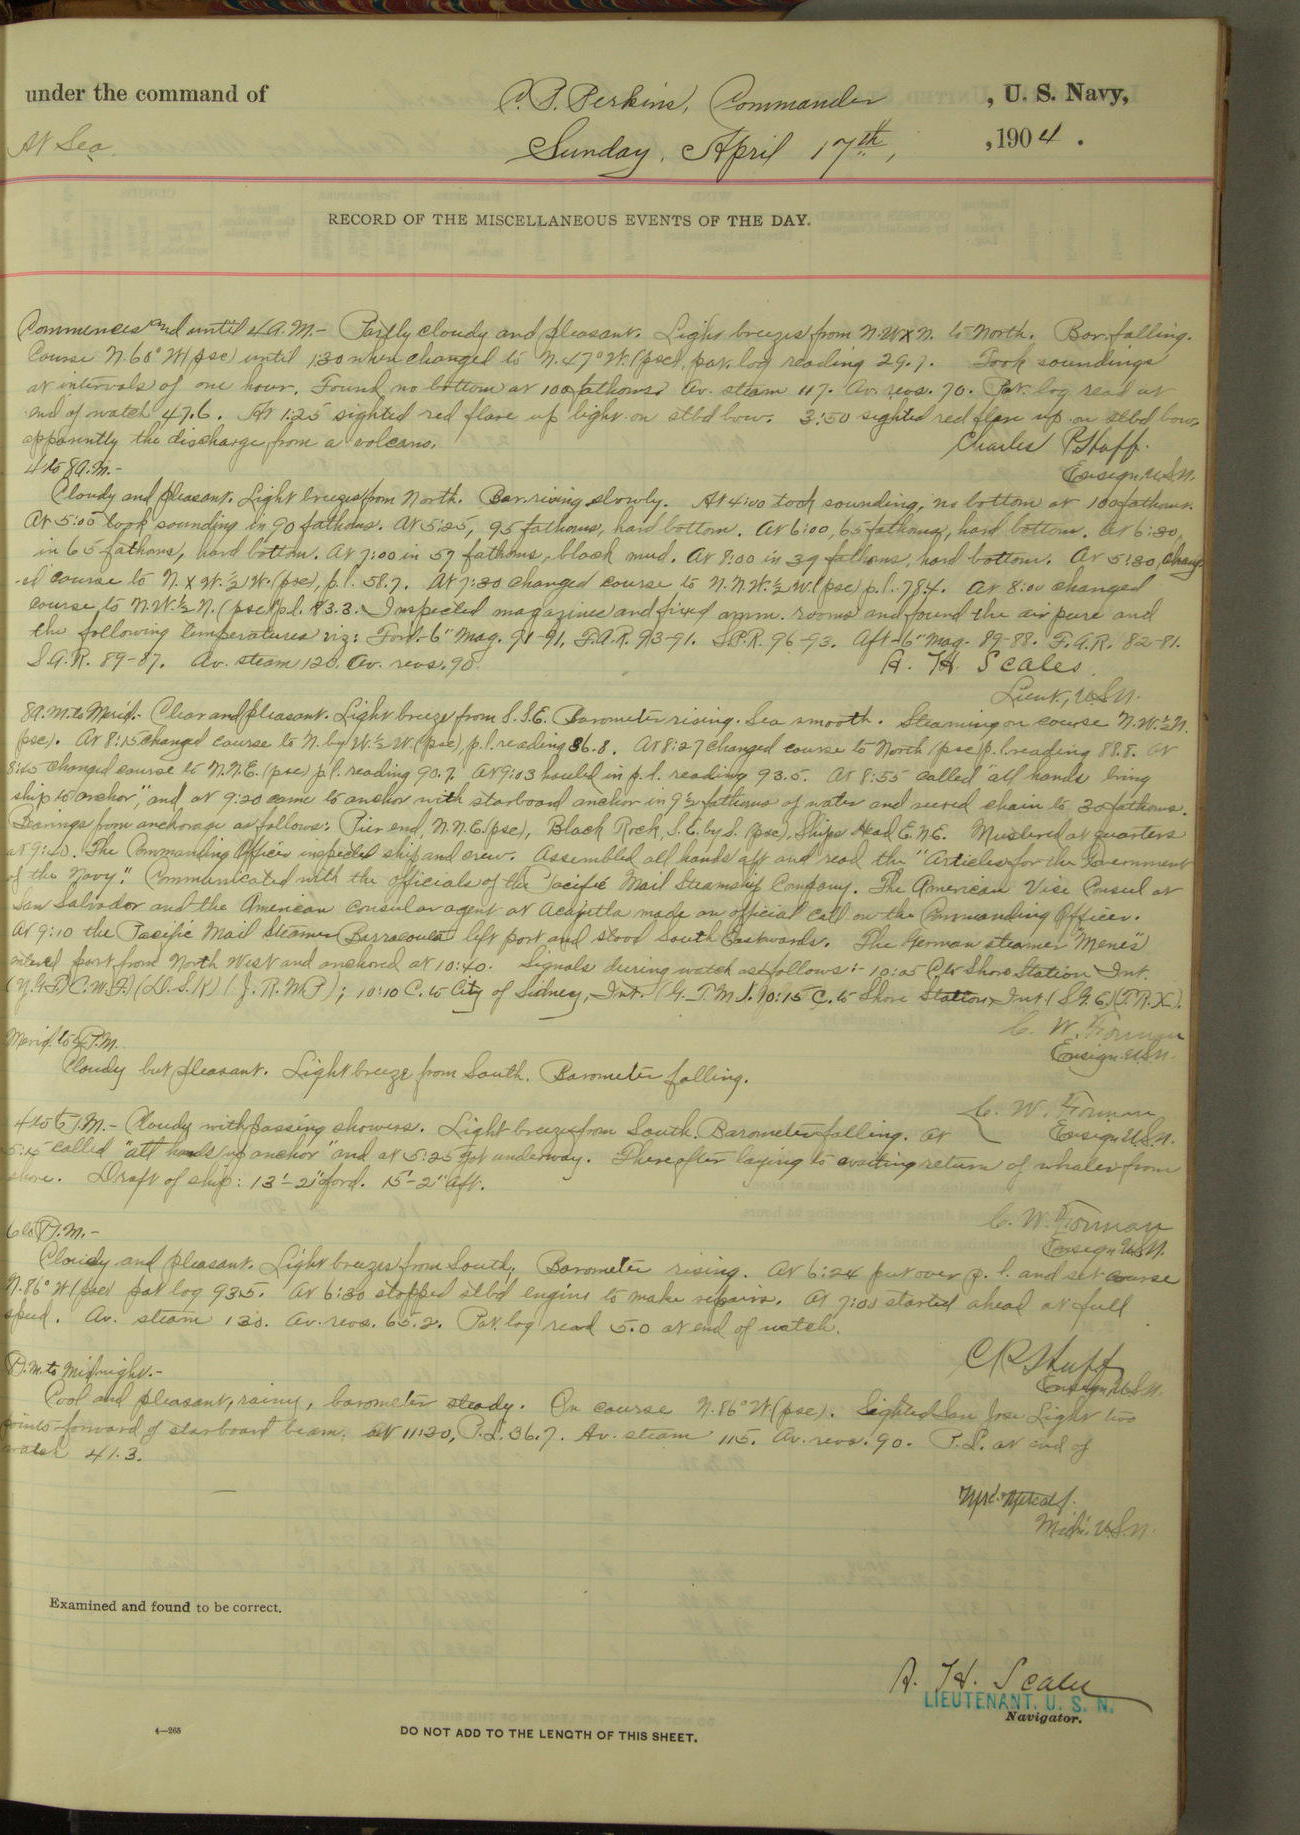 under the command of C. P. Perkins, Commander , U. S. Navy,
At Sea. Sunday, April 17th, , 1904 .
RECORD OF THE MISCELLANEOUS EVENTS OF THE DAY.
Commences and until 4 A.M.- Partly cloudy and pleasant. Light breezes from N.W x N. to North. Bar. falling.
Course N. 60° W (psc) until 1:30 when changed to N. 47° W. (psc), pat. log reading 29.7. Took soundings
at intervals of one hour. Found no bottom at 100 fathoms. Av. steam 117. Av. revs. 70. Pat. log read at
end of watch 47.6. At 1:25 sighted red flare up light on stbd bow. 3:50 sighted red flare up on stbd bow,
apparently the discharge from a volcano. Charles P. Huff.
4 to 8 A.M.- Ensign, U.S.N.
Cloudy and pleasant. Light breezes from North. Bar. rising slowly. At 4:00 took sounding, no bottom at 100 fathoms.
At 5:00 took sounding in 90 fathoms. At 5:25, 95 fathoms, hard bottom. At 6:00, 65 fathoms, hard bottom. At 6:30,
in 65 fathoms, hard bottom. At 7:00 in 57 fathoms, black mud. At 8:00 in 39 fathoms, hard bottom. At 5:30, chang-
ed course to N. x W. ½ W. (psc), p.l. 58.7. At 7:30 changed course to N.N.W. ½ W. (psc) p.l. 78.4. At 8:00 changed
course to N.W. ½ N. (psc) p.l. 83.3. Inspected magazines and fixed amm. rooms and found the air pure and
the following temperatures viz: Ford-6" Mag. 91-91. F.A.R. 93-91. S.P.R. 96-93. Aft-6" Mag. 89-88. F.A.R. 82-81.
S.A.R. 89-87. Av. steam 120. Av. revs. 90. A. H. Scales.
Lieut., U.S.N.
8 A.M. to Merid.- Clear and pleasant. Light breeze from S.S.E. Barometer rising. Sea smooth. Steaming on course N.W. ½ N.
(psc). At 8:15 changed course to N. by W. ½ W. (psc) p.l. reading 86.8. At 8:27 changed course to North (psc) p.l. reading 88.8. At
8:45 changed course to N.N.E. (psc) p.l. reading 90.7. At 9:03 hauled in p.l. reading 93.5. At 8:55 called "all hands bring
ship to anchor," and at 9:20 came to anchor with starboard anchor in 9½ fathoms of water and veered chain to 30 fathoms.
Bearings from anchorage as follows: Pier end, N.N.E. (psc), Black Rock, S.E. by S. (psc), Ships Head E.N.E. Mustered at quarters
at 9:40. The Commanding Officer inspected ship and crew. Assembled all hands aft and read the "Articles for the Government
of the Navy." Communicated with the officials of the Pacific Mail Steamship Company. The American Vice Consul at
San Salvador and the American consular agent at Acajutla made an official call on the Commanding Officer.
At 9:10 the Pacific Mail Steamer Barracouta left port and stood South Eastwards. The German steamer "Menes"
entered port from North West and anchored at 10:40. Signals during watch as follows:- 10:05 C. to Shore Station, Int.
(C.W.F.) (D.S.K) (J.R.M.P); 10:10 C. to City of Sidney, Int. (G.T.M.). 10:15 C. to Shore Station, Int. (S.G.E) (T.R.X).
C. W. Forman
Merid. to 4 P.M. Ensign, U.S.N.
Cloudy but pleasant. Light breeze from South. Barometer falling.
C. W. Forman
4 to 6 P.M.- Cloudy with passing showers. Light breezes from South. Barometer falling. At Ensign U.S.N.
5:15 called "all hands up anchor" and at 5:25 got underway. Thereafter laying to awaiting return of whaler from
shore. Draft of ship: 13'-2" ford. 15'-2" aft.
C. W. Forman
6 to P.M.- Ensign U.S.N.
Cloudy and pleasant. Light breezes from South. Barometer rising. At 6:24 put over p. l. and set course
N. 86° W (psc) pat log 93.5. At 6:30 stopped stbd engine to make repairs. At 7:00 started ahead at full
speed. Av. steam 130. Av. revs. 65.2. Pat. log read 5.0 at end of watch.
C P Huff
P.M. to Midnight.- Ensign U.S.N.
Cool and pleasant, rainy, barometer steady. On course N. 86° W (psc). Sighted San Jose Light two
points forward of starboard beam, at 11:20, P.L. 36.7. Av. steam 115. Av. revs. 90. P.L. at end of
watch 41.3.
Metcalf.
Mid'n. U.S.N.
Examined and found to be correct.
A. H. Scales
LIEUTENANT, U. S. N.
Navigator.
4-265
DO NOT ADD TO THE LENGTH OF THIS SHEET.